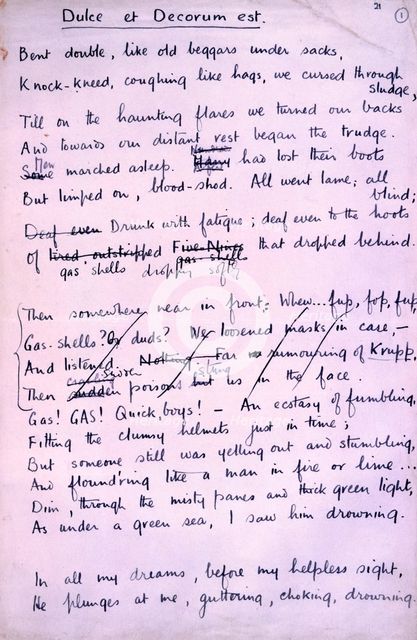 21
1
Dulce et Decorum est.
Bent double, like old beggars under sacks,
Knock-kneed, coughing like hags, we cursed through
sludge,
Till on the haunting flares we turned our backs
And towards our distant rest began the trudge.
Some Men marched asleep. Many had lost their boots
But limped on, blood-shod. All went lame; all
blind;
Deaf even Drunk with fatigue; deaf even to the hoots
Of tired, outstripped Five-Nines that dropped behind.
gas shells dropping softly gas shells
Then somewhere near in front: Whew... fup, fop, fup,
Gas-shells? Or duds? We loosened masks in case, —
And listened. Nothing. Far rumouring of Krupp,
Then sudden poisons hit us in the face.
Gas! GAS! Quick, boys! — An ecstasy of fumbling,
Fitting the clumsy helmets just in time;
But someone still was yelling out and stumbling,
And flound'ring like a man in fire or lime...
Dim, through the misty panes and thick green light,
As under a green sea, I saw him drowning.
In all my dreams, before my helpless sight,
He plunges at me, guttering, choking, drowning.